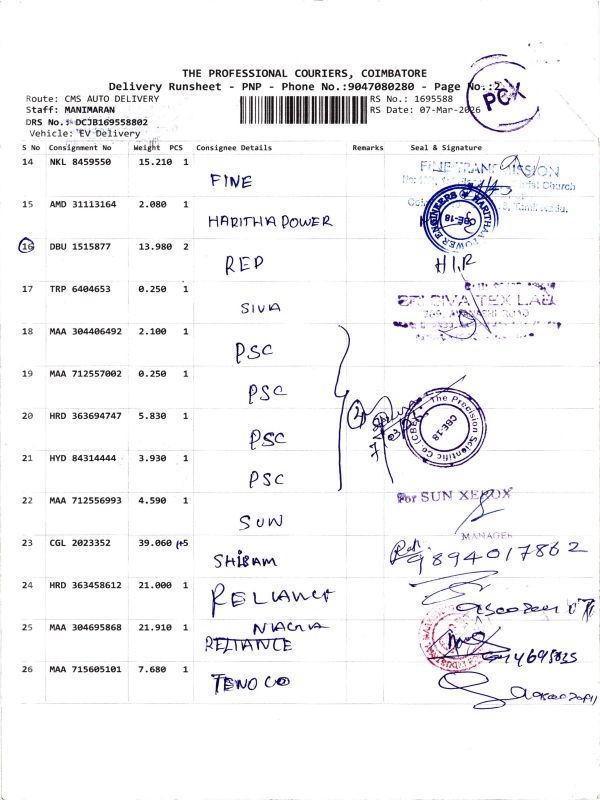 THE PROFESSIONAL COURIERS, COIMBATORE
Delivery Runsheet - PNP - Phone No.:9047080280 - Page No.:2
PCX
Route: CMS AUTO DELIVERY
RS No.: 1695588
Staff: MANIMARAN
RS Date: 07-Mar-2026
DRS No.: DCJB169558802
Vehicle: EV Delivery
S No Consignment No Weight PCS Consignee Details Remarks Seal & Signature
14 NKL 8459550 15.210 1
FINE
FINE TRANSMISSION
Church
15 AMD 31113164 2.080 1
HARITHA POWER
HARITHA POWER ENGINEERS CBE-18
16 DBU 1515877 13.980 2
REP
17 TRP 6404653 0.250 1
SIVA
SRI SIVA TEX LAB
18 MAA 304406492 2.100 1
PSC
19 MAA 712557002 0.250 1
PSC
20 HRD 363694747 5.830 1
PSC
The Precision Scientific Co. (CBE) CBE-18
21 HYD 84314444 3.930 1
PSC
22 MAA 712556993 4.590 1
SUN
For SUN XEROX
MANAGER
23 CGL 2023352 39.060
SHIBAM
9894017862
24 HRD 363458612 21.000 1
RELIANCE
25 MAA 304695868 21.910 1
RELIANCE
26 MAA 715605101 7.680 1